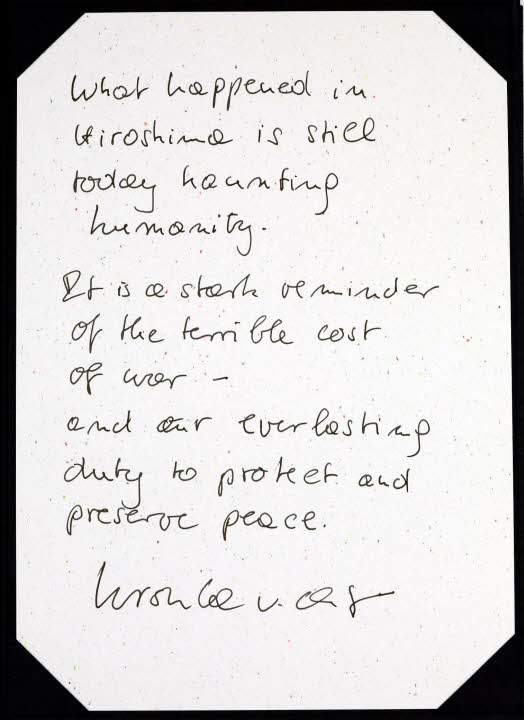 What happened in
Hiroshima is still
today haunting
humanity.
It is a stark reminder
of the terrible cost
of war –
and our everlasting
duty to protect and
preserve peace.